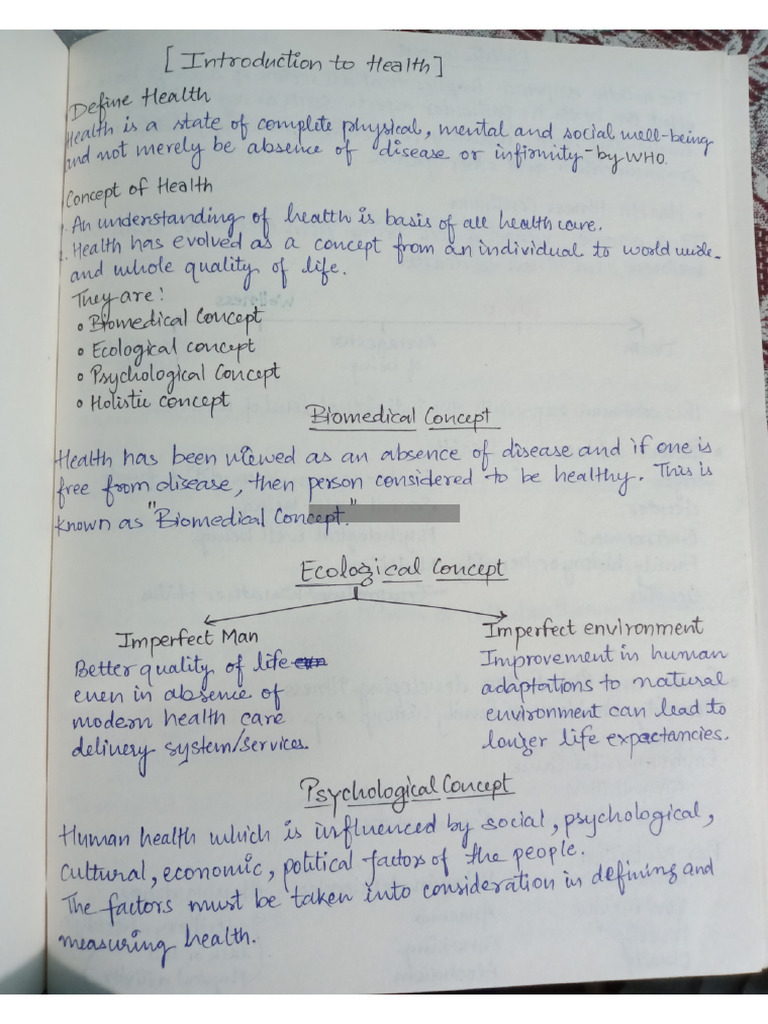 [Introduction to Health]
Define Health
Health is a state of complete physical, mental and social well-being
and not merely be absence of disease or infirmity - by WHO.
Concept of Health
1. An understanding of health is basis of all health care.
2. Health has evolved as a concept from an individual to world wide
and whole quality of life.
They are:
• Biomedical Concept
• Ecological concept
• Psychological Concept
• Holistic concept
Biomedical Concept
Health has been viewed as an absence of disease and if one is
free from disease, then person considered to be healthy. This is
known as "Biomedical Concept."
Ecological Concept
Imperfect Man
Better quality of life
even in absence of
modern health care
delivery system/services.
Imperfect environment
Improvement in human
adaptations to natural
environment can lead to
longer life expectancies.
Psychological Concept
Human health which is influenced by social, psychological,
cultural, economic, political factors of the people.
The factors must be taken into consideration in defining and
measuring health.